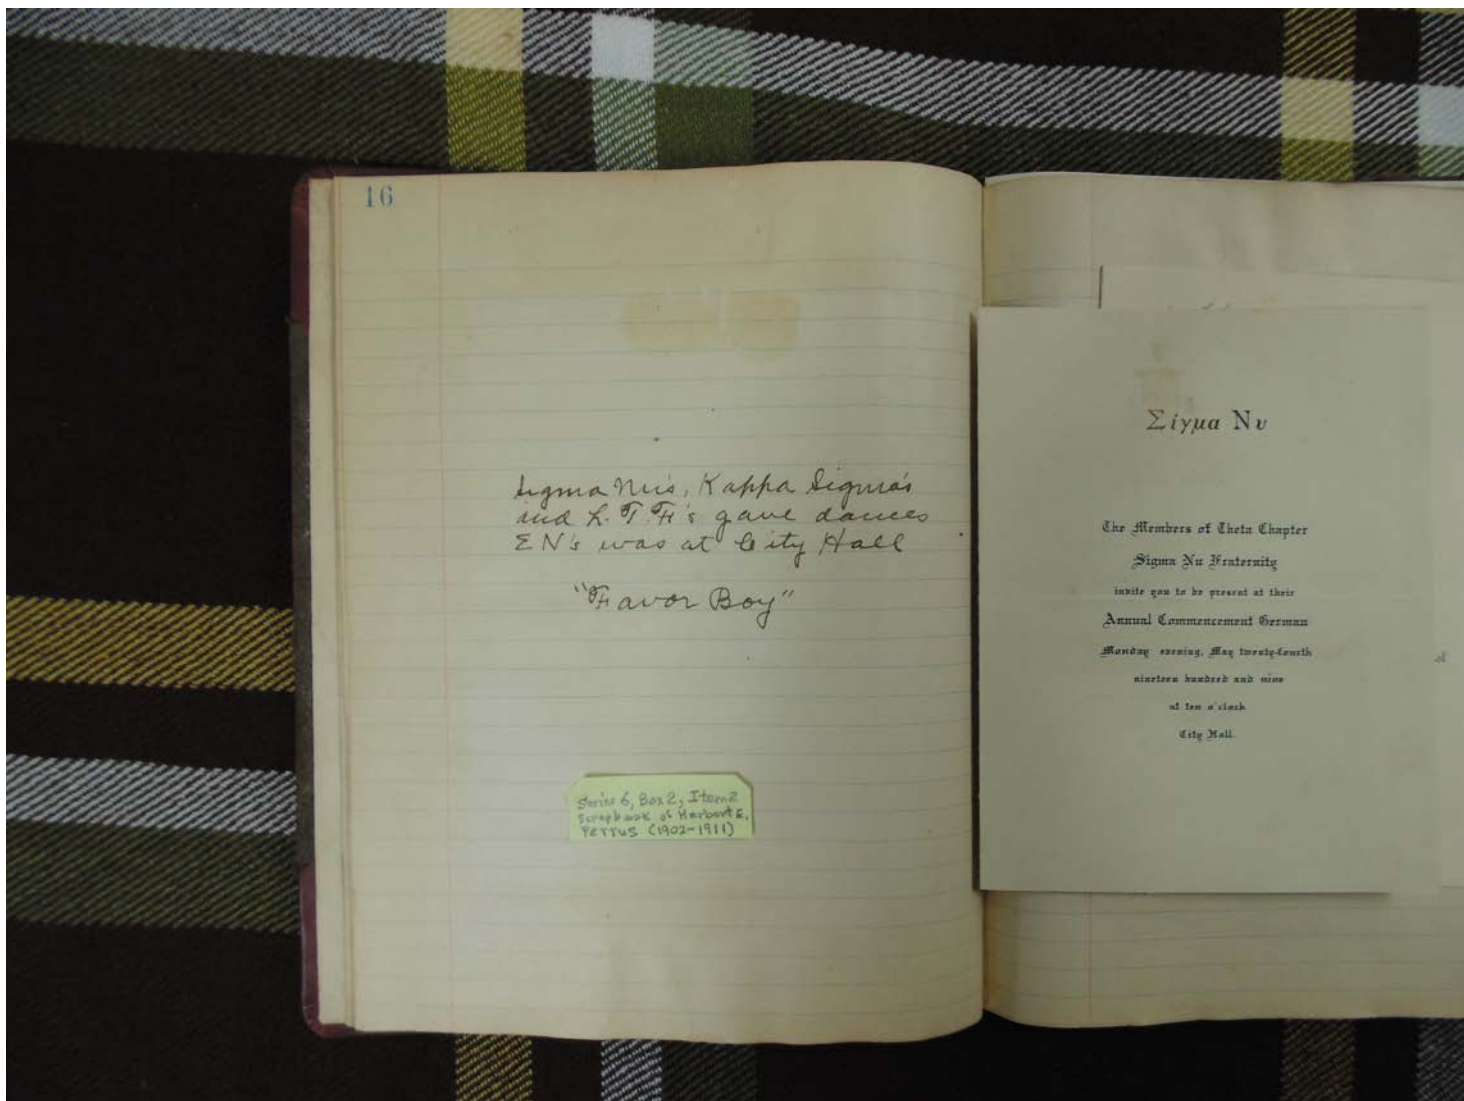 16
Sigma Nu's, Kappa Sigma's
and L. T. F's gave dances
ΣN's was at City Hall
"Favor Boy"
Series 6, Box 2, Item 2
Scrapbook of Harbert E.
(1902-1911)
Σίγμα Νυ
The Members of Theta Chapter
Sigma Nu Fraternity
invite you to be present at their
Annual Commencement German
Monday evening, May twenty-fourth
nineteen hundred and nine
at ten o'clock
City Hall.